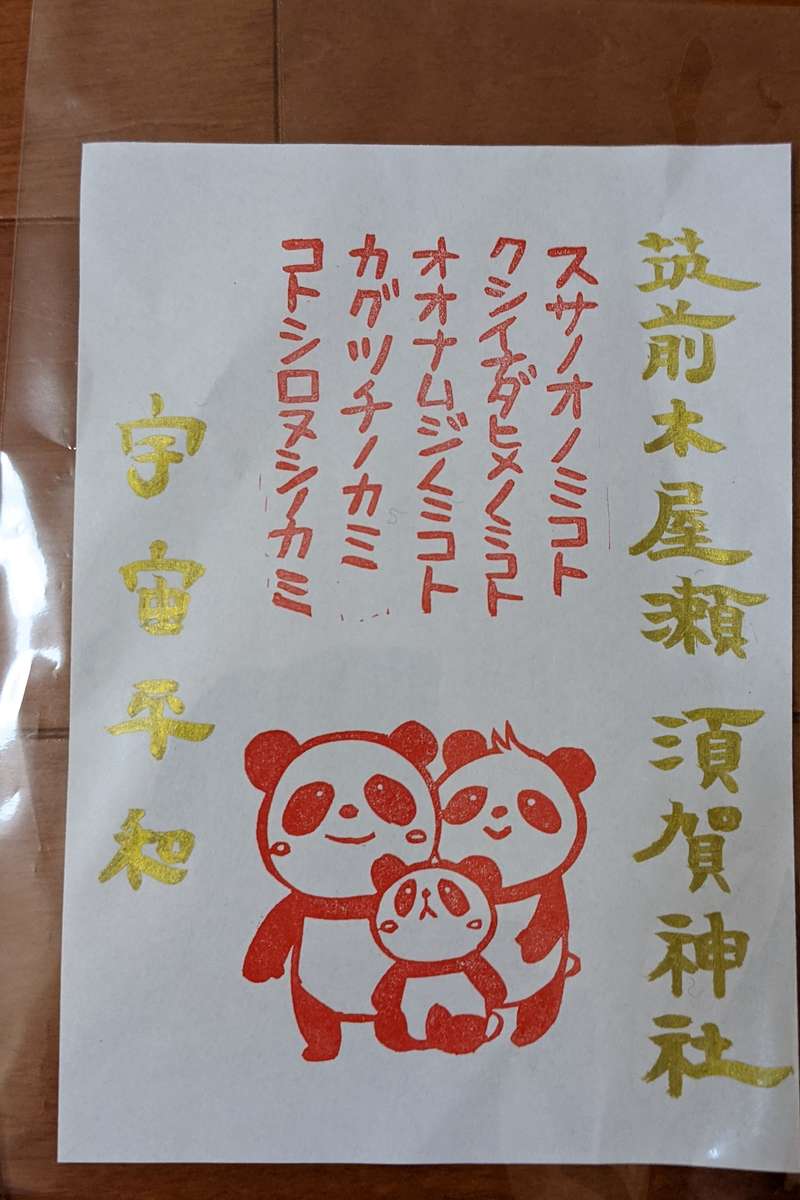 筑前木屋瀬 須賀神社
スサノオノミコト
クシイナダヒメノミコト
オオナムジノミコト
カグツチノカミ
コトシロヌシノカミ
宇宙平和